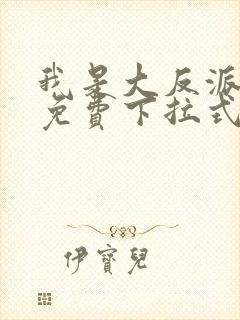 我是大反派
免費下拉式
伊寶兒